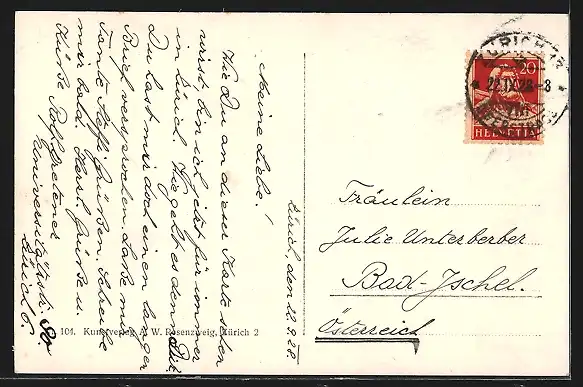 Zürich, den 22.9.28
Meine Liebe!
Wie Du an dieser Karte sehen
wirst bin ich jetzt für immer
in Zürich. Wie geht es denn Dir?
Du hast mir doch einen langen
Brief versprochen. Lasse mir
Tante Steffi grüßen. Schreibe
mir bald. Herzl. Grüsse u.
Küsse
Universitätsstr.
Zürich 6.
101. Kunstverlag A. W. Rosenzweig, Zürich 2
ZÜRICH
22.IX.28-8
20
HELVETIA
Fräulein
Julie Unterberber
Bad-Ischel.
Österreich